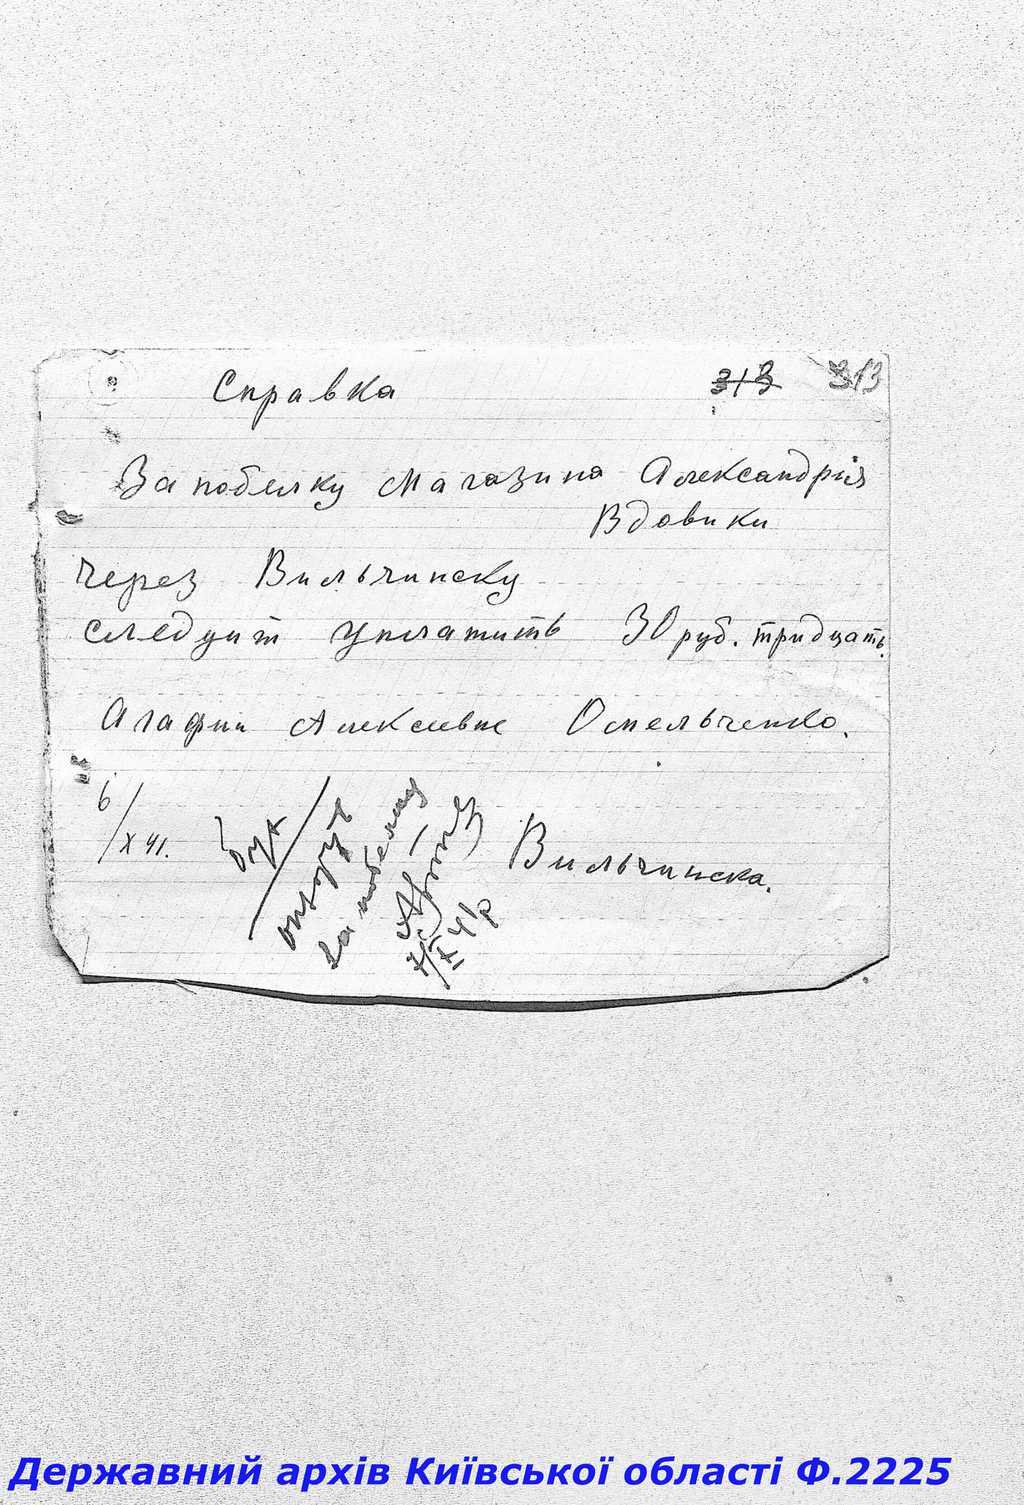 Справка
313 313
За побелку магазина Александрія
Вдовики
Через Вильчинску
следуит уплатить 30 руб. тридцать.
Агафии Алексевне Омельченко.
6/X 41.
Бух
за побелку
7/X 41 р
Вильчинска.
Державний архів Київської області Ф.2225